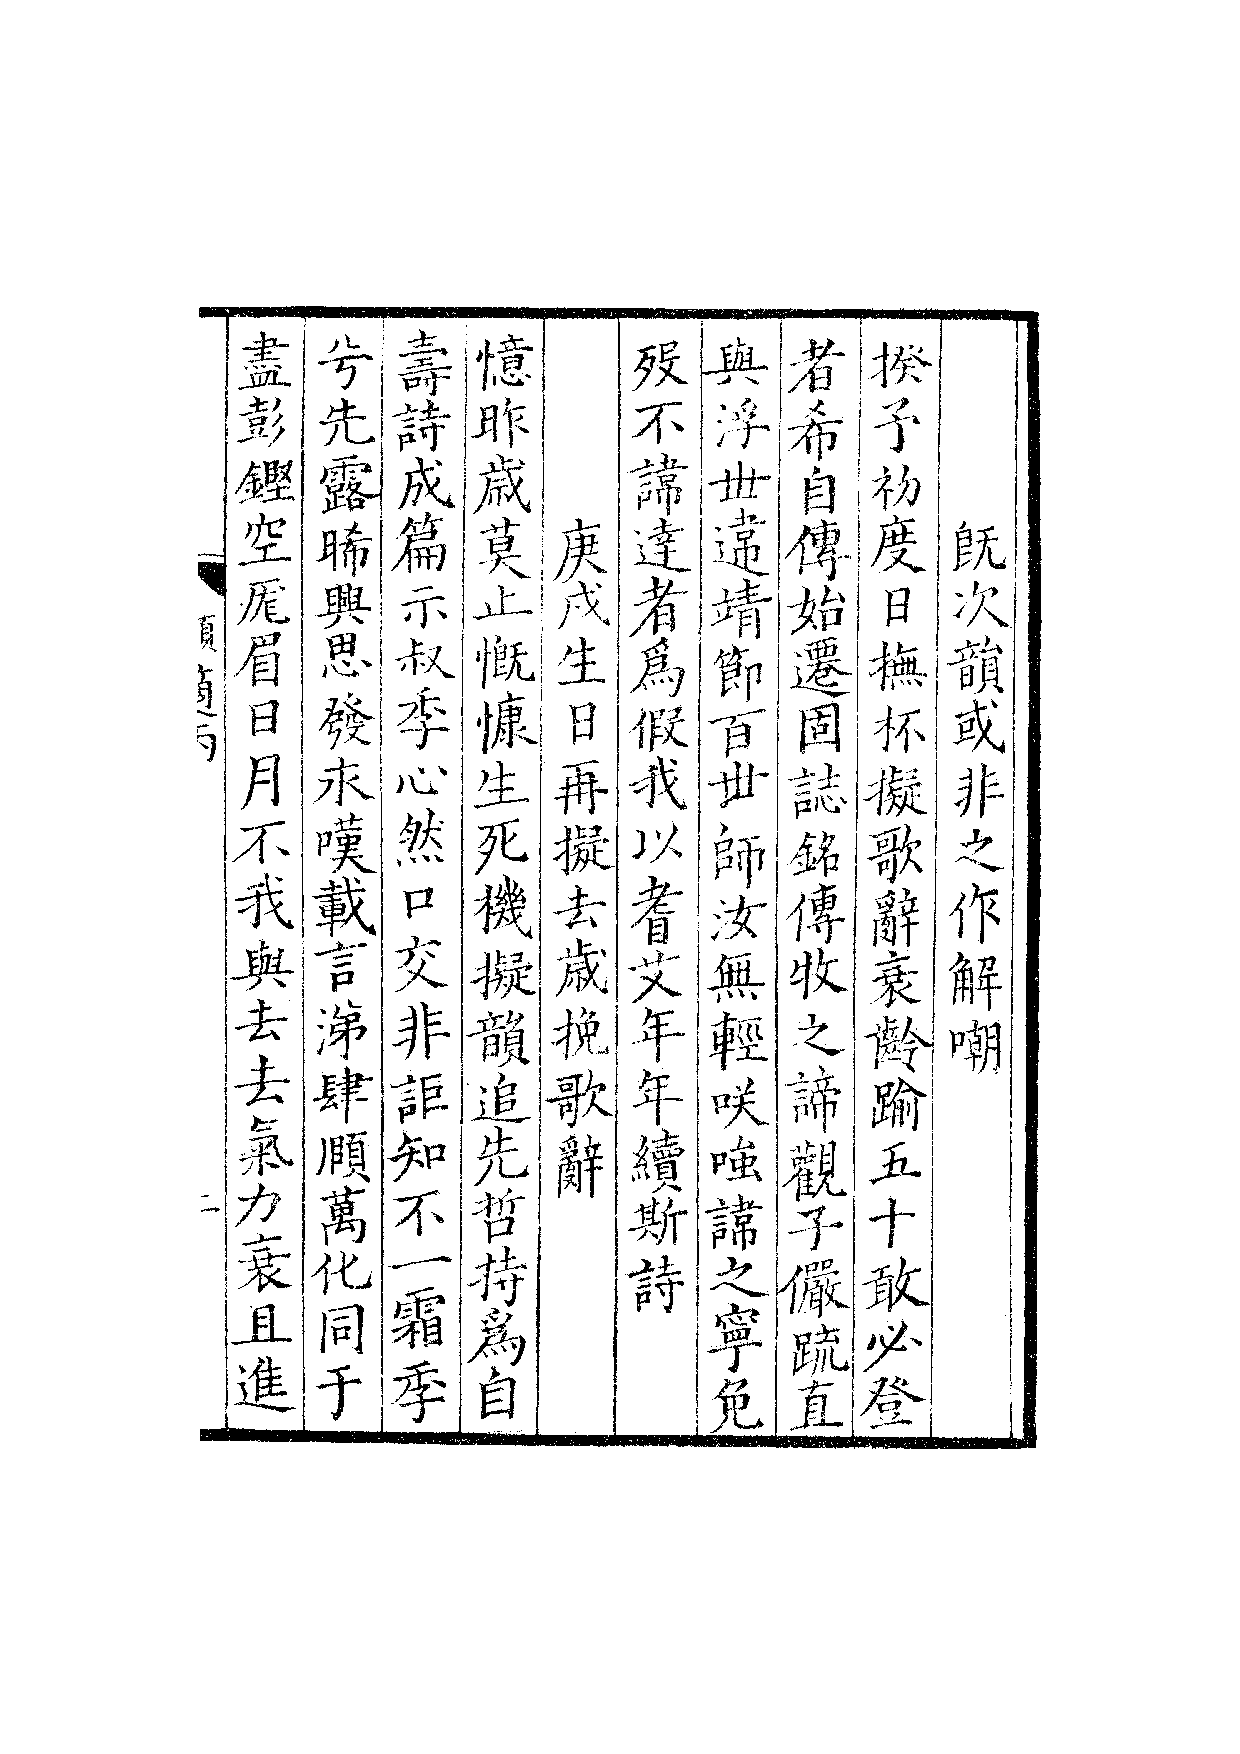 旣次韻或非之作解嘲
揆予初度日撫杯擬歌辭衰齡踰五十敢必登
者希自傳始遷固誌銘傳牧之諦觀子儼疏直
與浮丗違靖節百丗師汝無輕咲嗤諱之寧免
歿不諱達者爲假我以耆艾年年續斯詩
庚戌生日再擬去歲挽歌辭
憶昨歲莫止慨慷生死機擬韻追先哲持爲自
壽詩成篇示叔季心然口交非詎知不一霜季
兮先露晞興思發永嘆載言涕肆頋萬化同于
盡彭鏗空厖眉日月不我與去去氣力衰且進
二